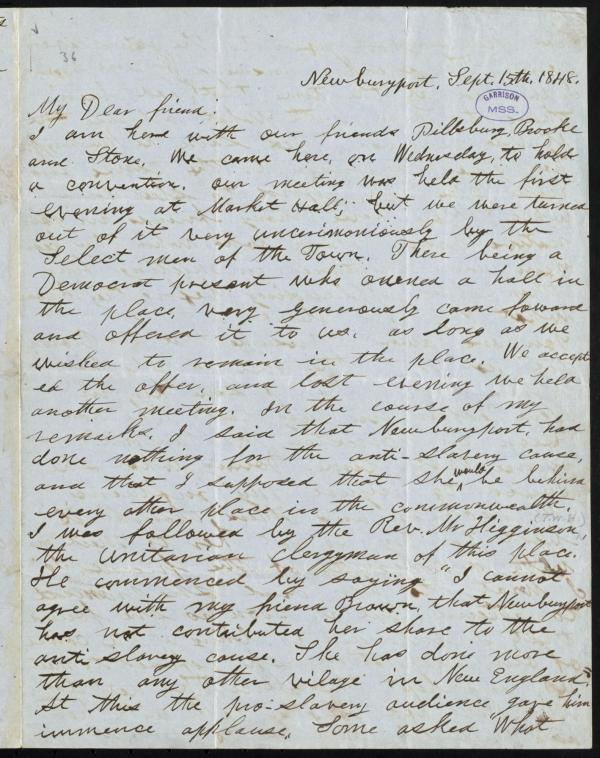 36
Newburyport, Sept. 15th, 1848.
GARRISON
MSS.
My Dear friend:
I am here with our friends Pillsbury, Brooke
and Stone. We came here, on Wednesday, to hold
a convention. our meeting was held the first
evening at Market Hall; but we were turned
out of it very uncerimoniously by the
Select men of the Town. There being a
Democrat present who owned a hall in
the place, very generously came foward
and offered it to us, as long as we
wished to remain in the place. We accept
ed the offer, and last evening we held
another meeting. In the course of my
remarks, I said that Newburyport, had
done nothing for the anti-slavery cause,
and that I supposed that she would be behind
every other place in the commonwealth.
I was followed by the Rev. Mr Higginson,
(T.W.H.)
the Unitarian clergyman of this place.
He commenced by saying "I cannot
agree with my friend Brown, that Newburyport
has not contributed her share to the
anti slavery cause. She has done more
than any other vilage in New England."
At this the pro-slavery audience gave him
immence applause. Some asked "What